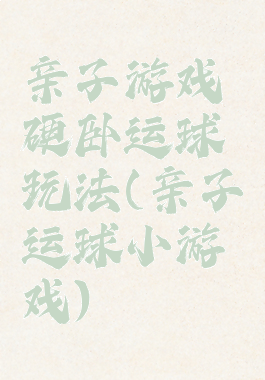 亲子游戏
硬卧运球
玩法(亲子
运球小游
戏)